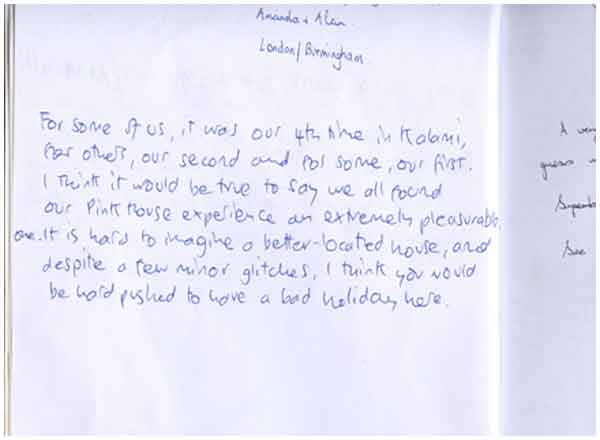 Amanda + Alan
London/Birmingham.
For some of us, it was our 4th time in Kalami,
for others, our second and for some, our first.
I think it would be true to say we all found
our Pink House experience an extremely pleasurable
one. It is hard to imagine a better-located house, and
despite a few minor glitches, I think you would
be hard pushed to have a bad holiday here.
A very
See